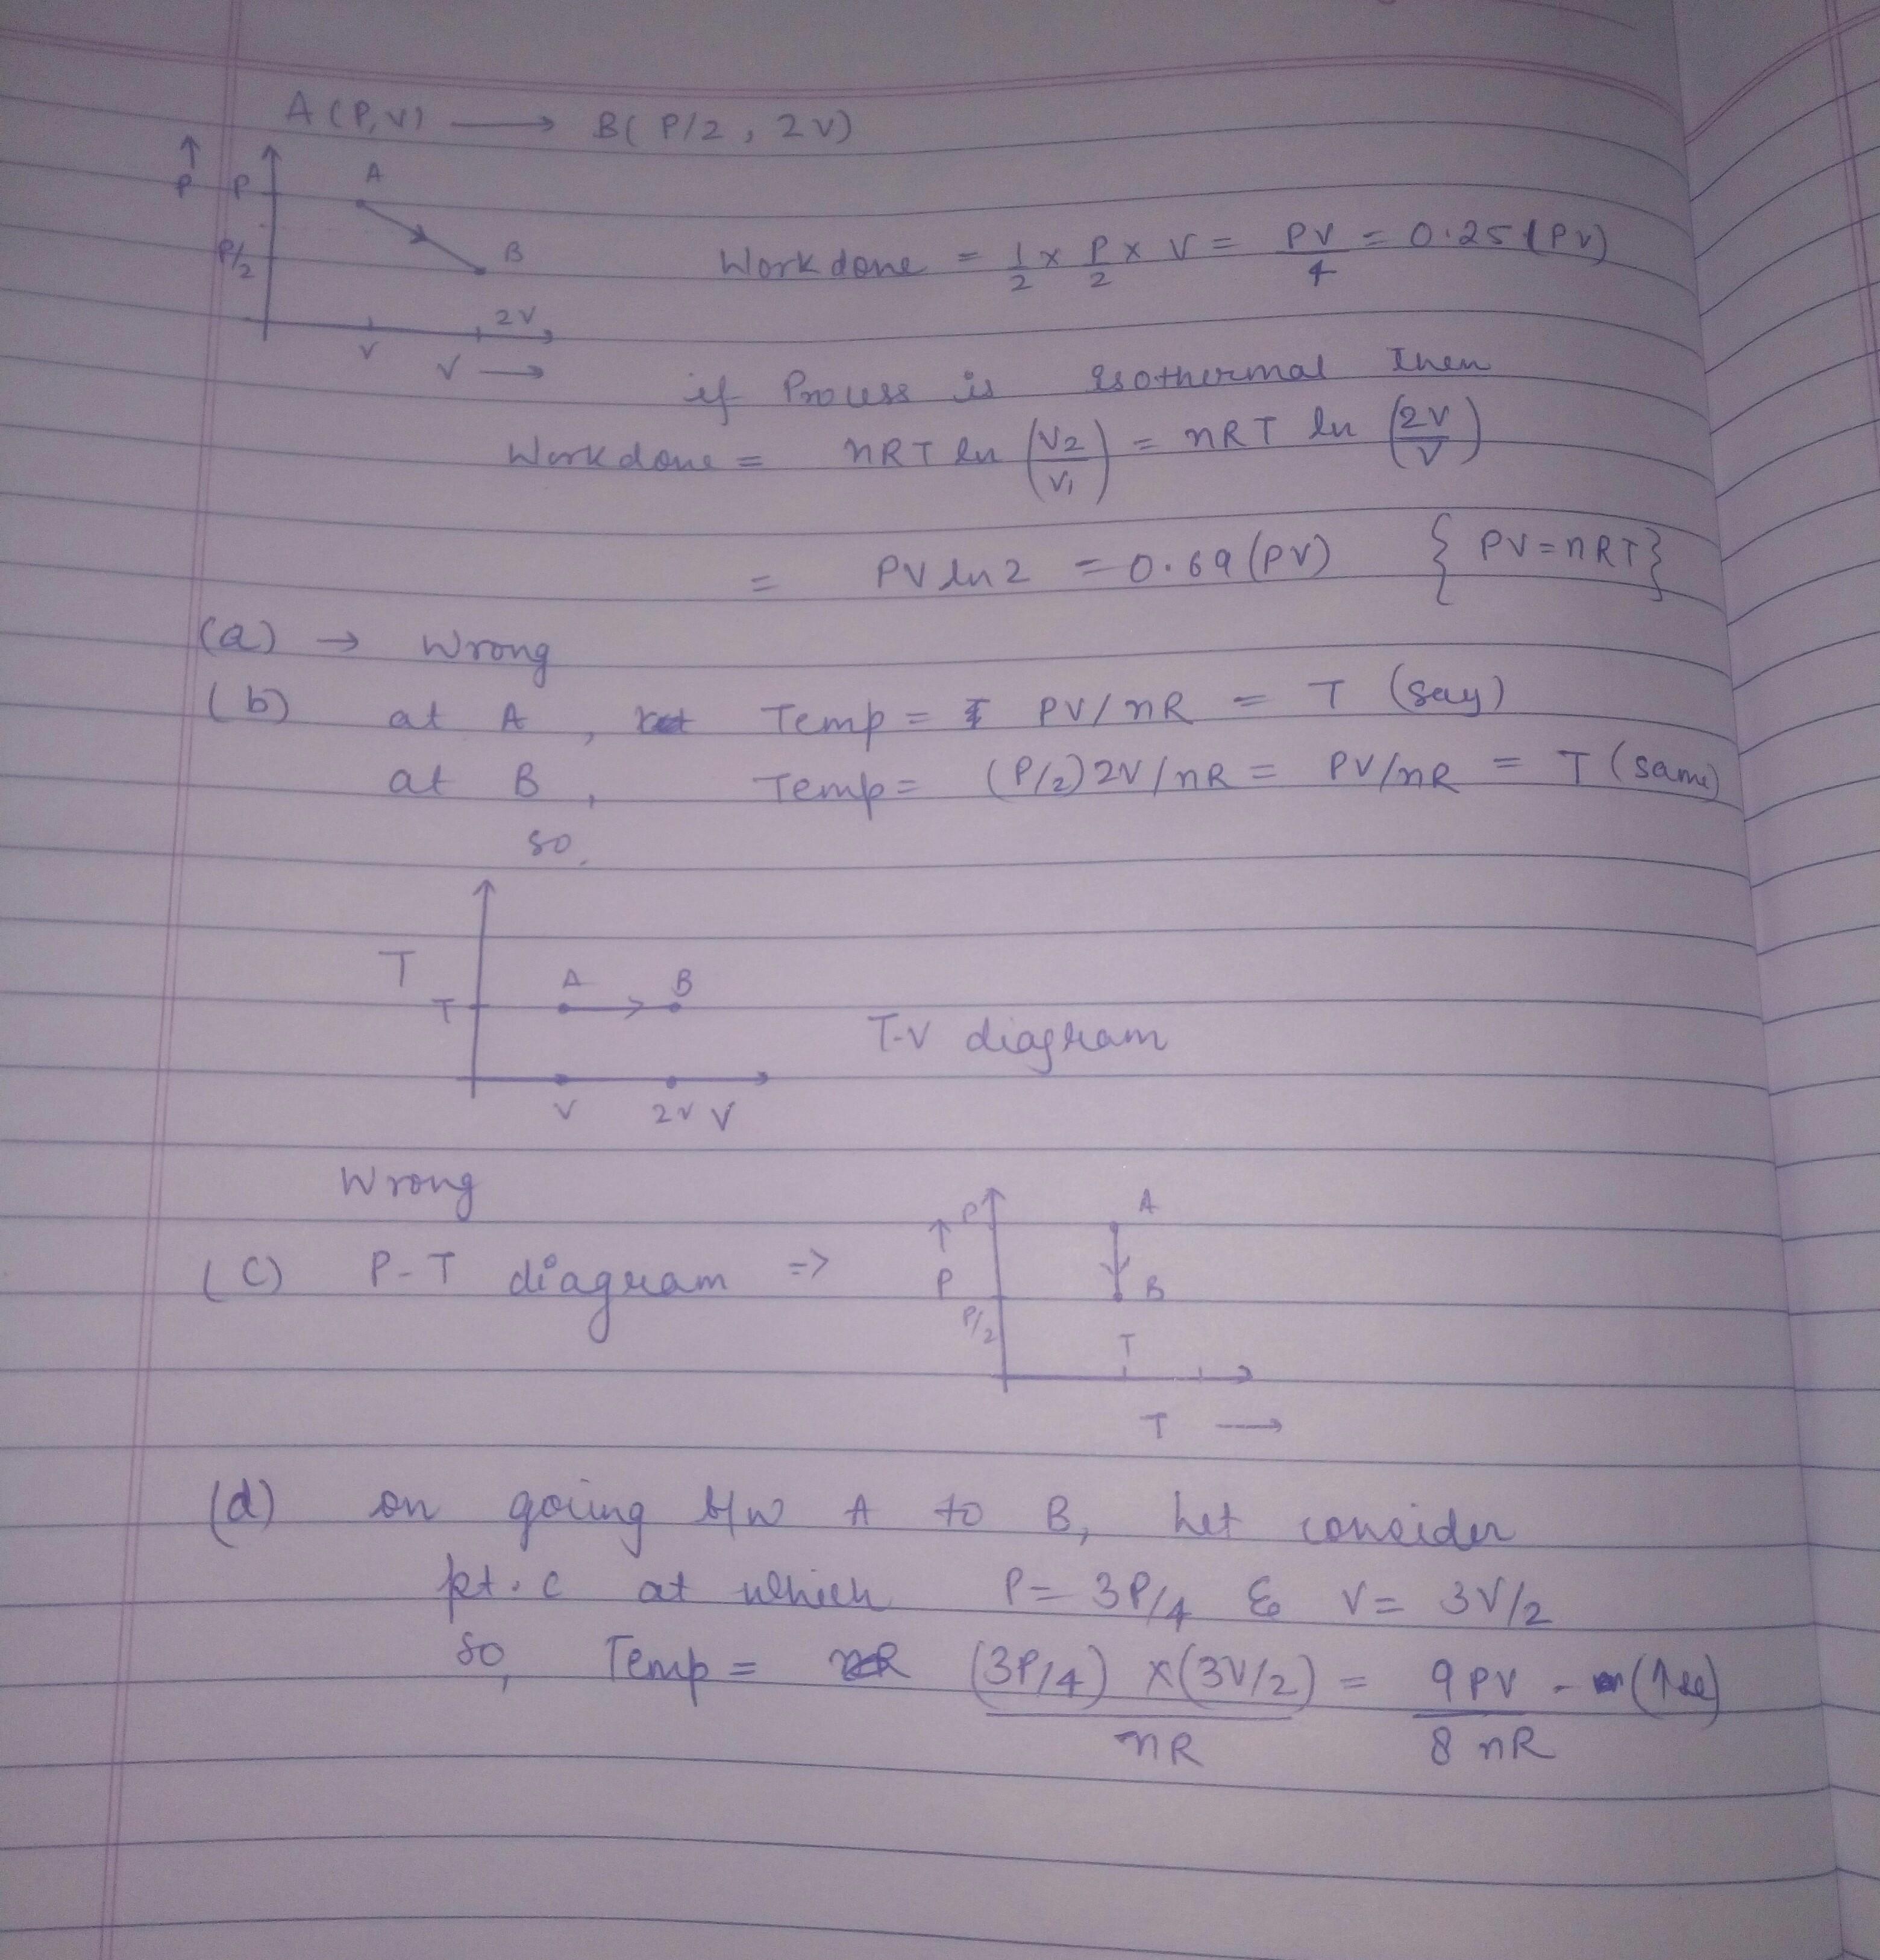 A (P, V) → B( P/2 , 2V)
↑ P
P
A
P/2
B
2V
V
V →
Work done = 1/2 × P/2 × V = PV/4 = 0.25 (PV)
if Process is Isothermal then
Work done = nRT ln (V2/V1) = nRT ln (2V/V)
= PV ln 2 = 0.69 (PV) { PV = nRT }
(a) → Wrong
(b) at A , Temp = PV/nR = T (say)
at B , Temp = (P/2) 2V/nR = PV/nR = T (same)
so,
T
A B
T
T-V diagram
V 2V V
Wrong
(C) P-T diagram =>
↑ P
P
A
P/2
B
T
T →
(d) on going b/w A to B, let consider
pt. c at which P = 3P/4 & V = 3V/2
so, Temp = (3P/4) × (3V/2) / nR = 9PV / 8nR - (↑se)